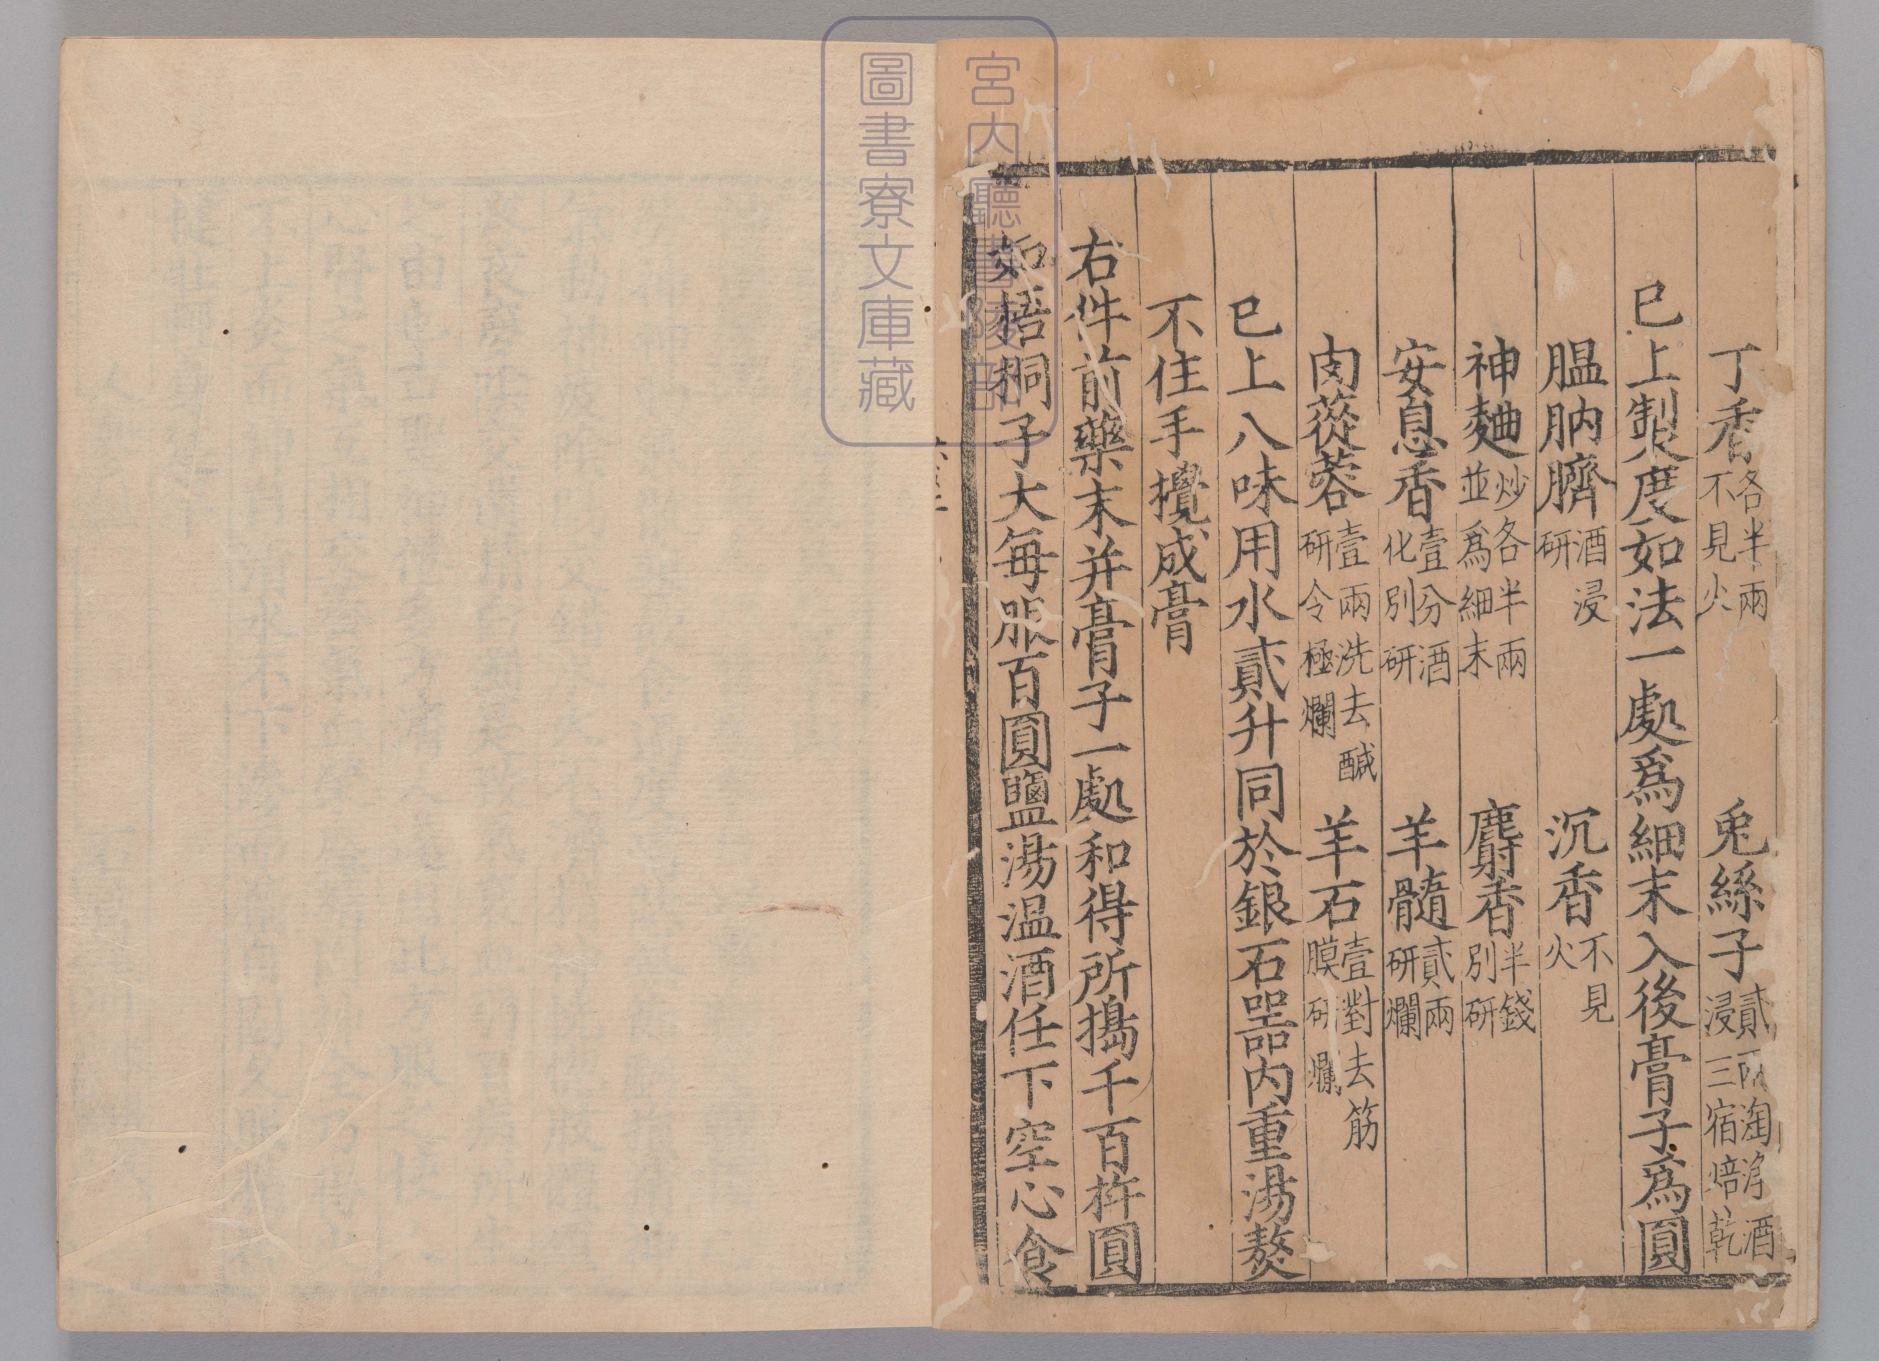 丁香各半兩不見火　兎絲子貳兩淘淨酒浸三宿焙乾
已上製度如法一處爲細末入後膏子爲圓
膃肭臍酒浸研　沉香不見火
神麯炒各半兩並爲細末　麝香半錢別研
安息香壹分酒化別研　羊髓貳兩研爛
肉蓯蓉壹兩洗去醎研令極爛　羊石壹對去筋膜研爛
已上八味用水貳升同於銀石器內重湯熬
不住手攪成膏
右件前藥末并膏子一處和得所搗千百杵圓
如梧桐子大每服百圓鹽湯溫酒任下空心食
宮内廳書陵部
圖書寮文庫藏